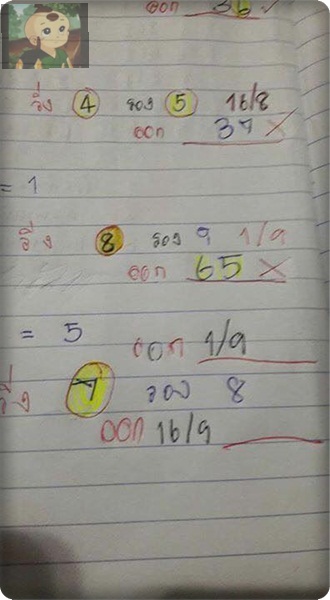 ออก 36 ✓
วิ่ง 4 รอง 5 16/8
ออก 37 ✗
= 1
วิ่ง 8 รอง 9 1/9
ออก 65 ✗
= 5 ออก 1/9
วิ่ง 7 รอง 8
ออก 16/9